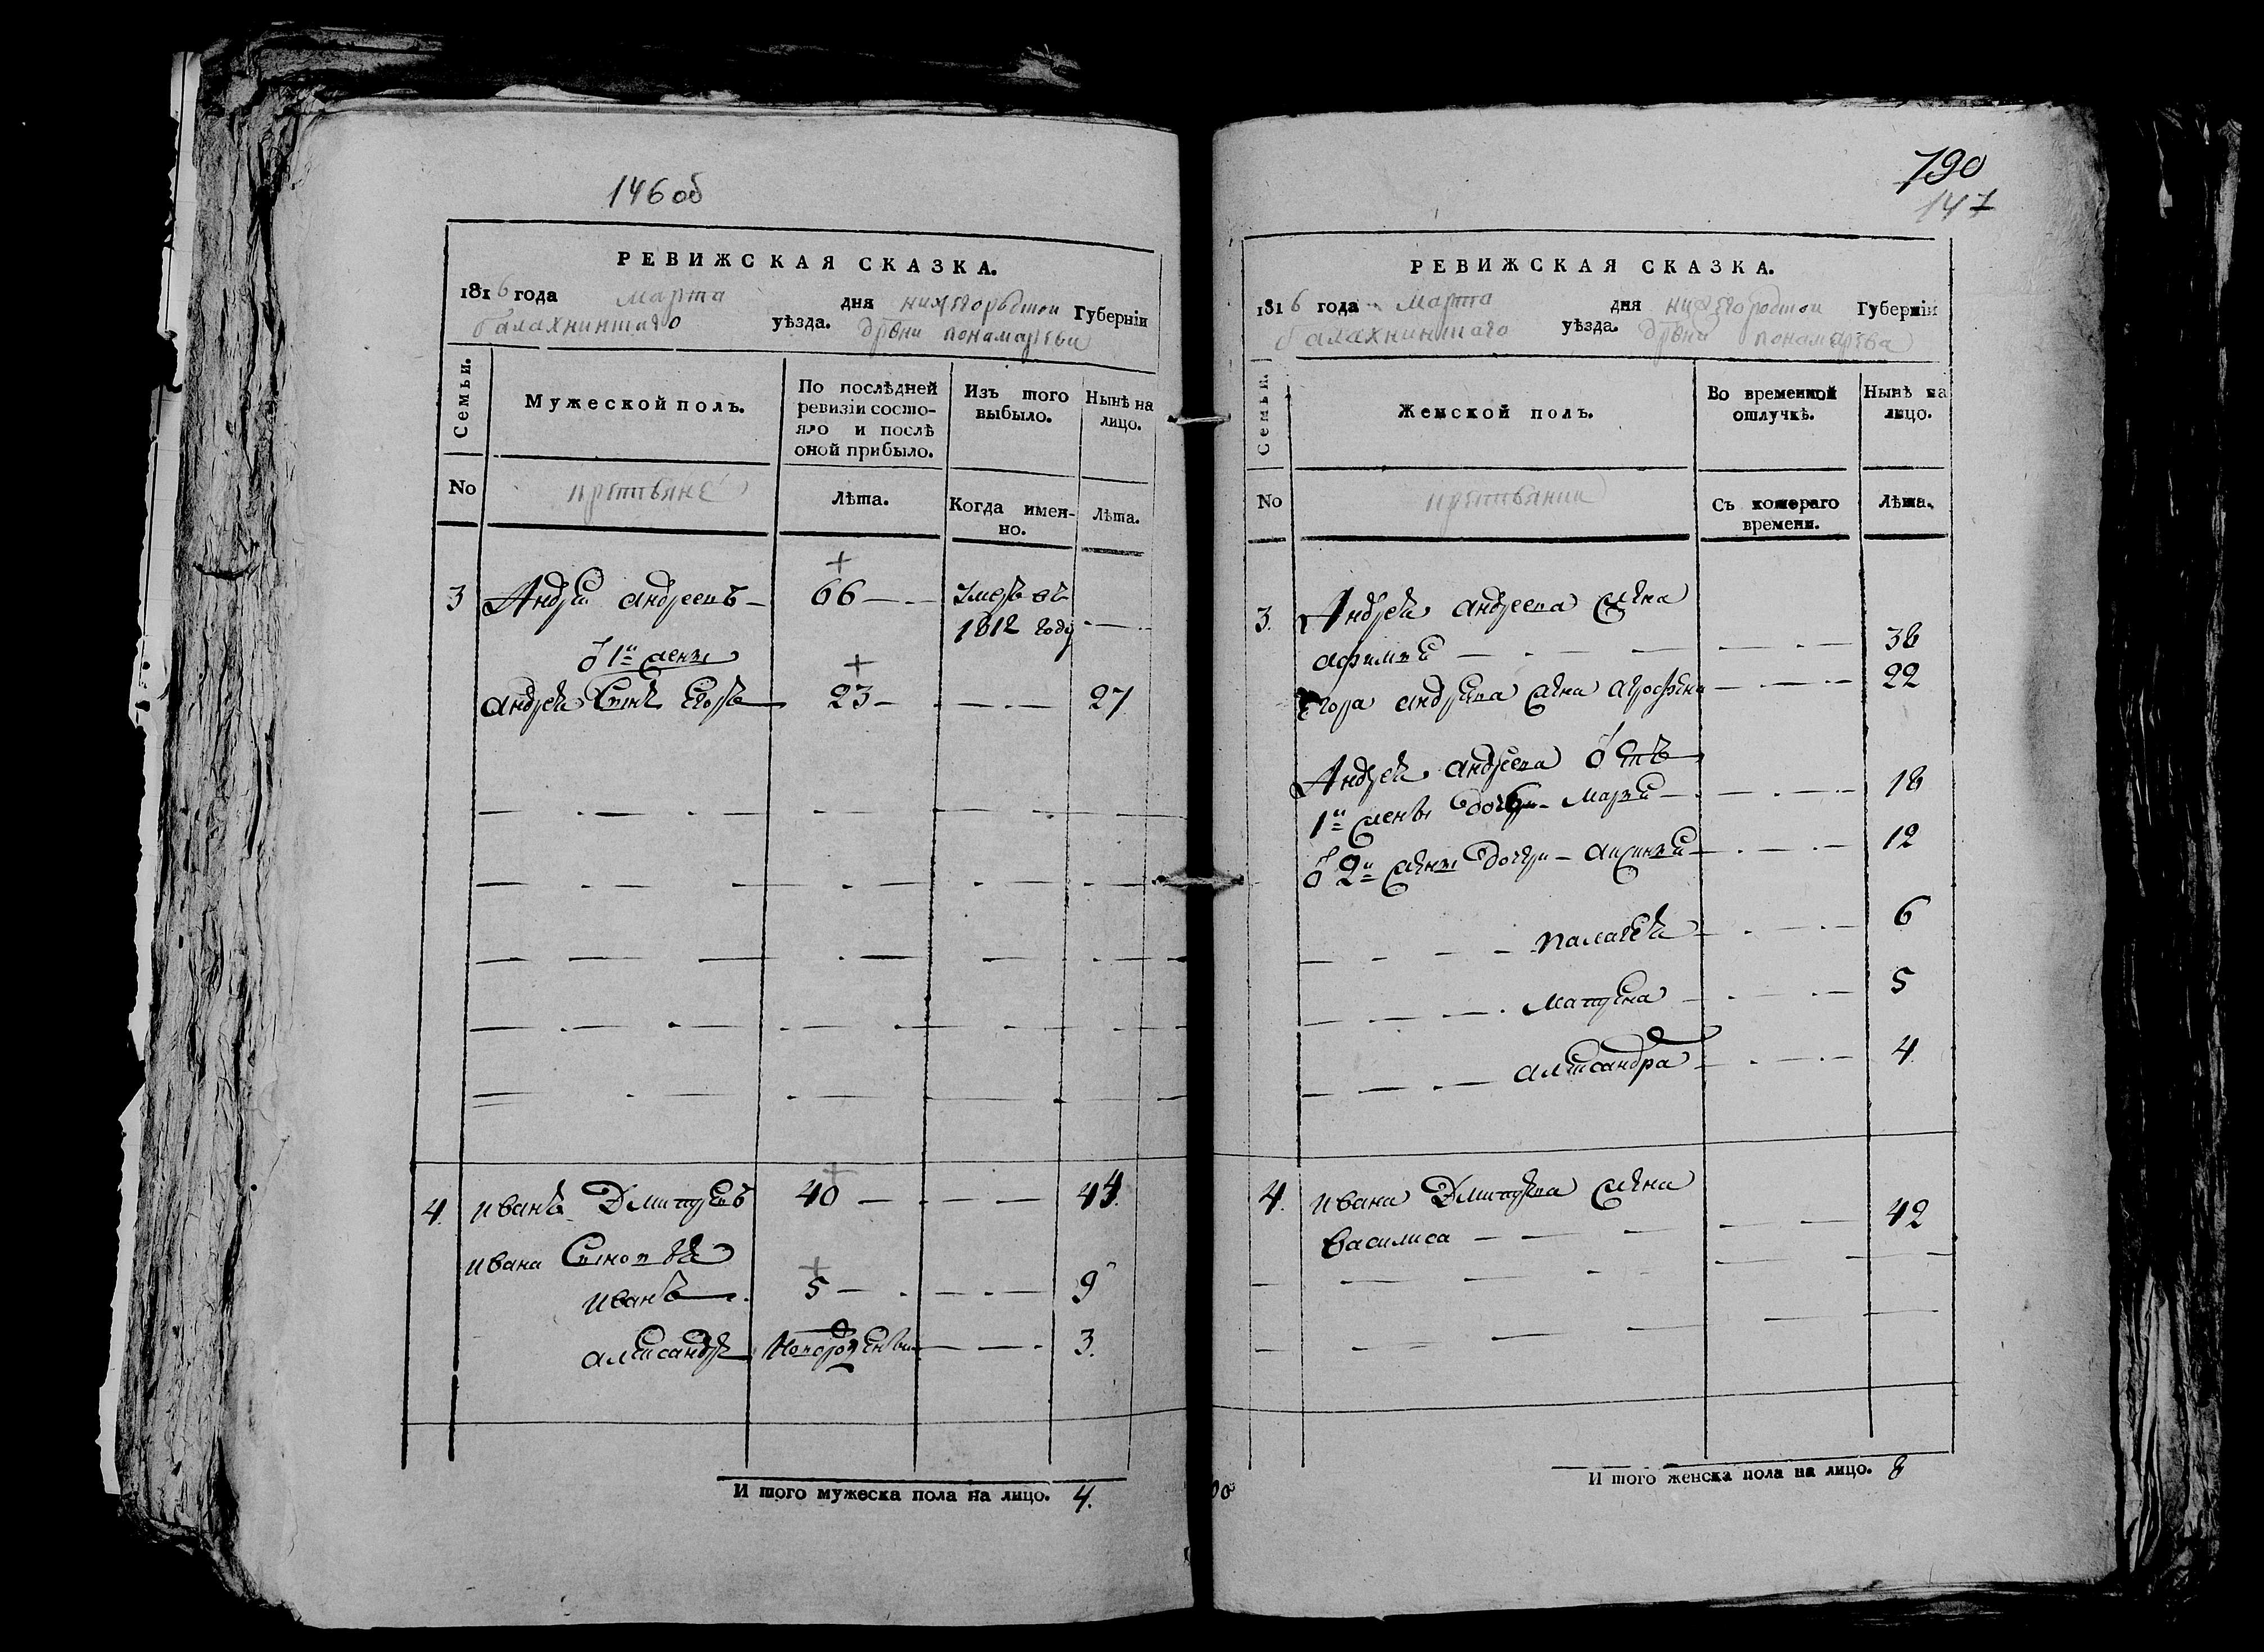 146 об
РЕВИЖСКАЯ СКАЗКА.
1816 года марта дня нижегородской Губерніи
балахнинскаго уѣзда. дрвни понамарева
Семьи.
Мужеской полъ.
По послѣдней ревизіи состояло и послѣ оной прибыло.
Изъ того выбыло.
Нынѣ на лицо.
No
крестьяне
Лѣта.
Когда именно.
Лѣта.
3 Андрей андреевъ 66 Умеръ въ
1812 году
1й жены
андрея Сынъ Егоръ 23 27
4. иванъ Дмитревъ 40 44.
ивана Сыновья
иванъ 5 9
александръ Новорожденъ 3.
И того мужеска пола на лицо. 4.
790
147
РЕВИЖСКАЯ СКАЗКА.
1816 года марта дня нижегородской Губерніи
балахнинскаго уѣзда. дрвни понамарева
Семьи.
Женской полъ.
Во временной отлучкѣ.
Нынѣ на лицо.
No
крестьянки
Съ котораго времени.
Лѣта.
3. Андрея андреева жена
афимья 38
Егора андреева жена аграфена 22
Андрея андреева отъ
1й жены дочерь марья 18
2й жены дочери аксинья 12
палагея 6
матрена 5
александра 4.
4. ивана Дмитрева жена
василиса 42
И того женска пола на лицо. 8